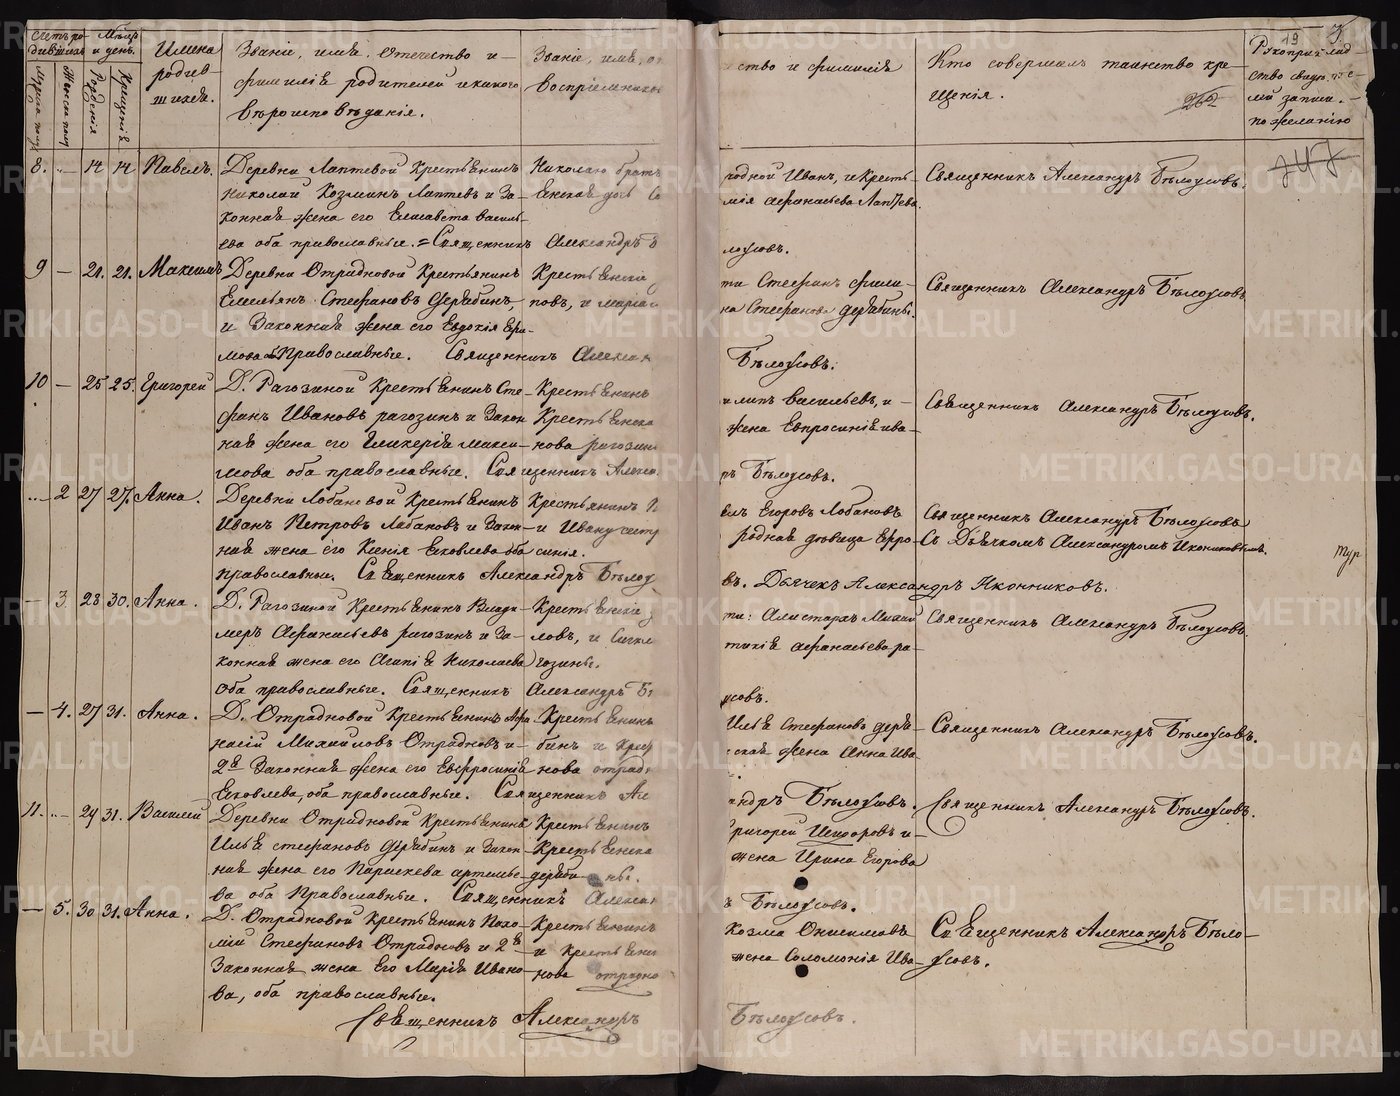 Счетъ ро-
дившихся
Мужеска полу
Женска полу
Мѣсяцъ
и день.
Рожденія
Крещенія
Имена
родив-
шихся.
Званіе, имя, отечество и
фамилія родителей и какого
вѣроисповѣданія.
Званіе, имя, от
воспріемников
ество и фамилія
Кто совершалъ таинство кре-
щенія.
262
19
Рукоприклад-
ство свидѣте-
лей записи
по желанію
8. „ 14 14 Павелъ.
Деревни Лаптевой Крестьянинъ
Николай Козминъ Лаптевъ и За-
конная жена его Елисавета василь-
ева оба православные. = Священникъ Александръ Б
лоусовъ.
Николаю братъ
родной Иванъ, и Кресть-
Священникъ Александръ Бѣлоусовъ.
9 — 21. 21. Максимъ
Деревни Отрадновой Крестьянинъ
Емельянъ Стефановъ Дерябинъ,
и Законная жена его Евдокія Ери-
мова Православные. Священникъ Алексан
Бѣлоусовъ.
повъ, и Марія
на Стефанова Дерябины.
Священникъ Александръ Бѣлоусовъ
10 — 25 25. Григорей
Д. Рагозиной Крестьянинъ Сте-
фанъ Ивановъ рагозинъ и Закон
ная жена его Гликерія Макси-
мова оба православные. Священникъ Алекса
ръ Бѣлоусовъ.
Крестьянинъ
липъ Васильевъ, и
Крестьянска
жена Евпросинія ива-
нова рагозин
Священникъ Александръ Бѣлоусовъ.
„ 2 27 27. Анна.
Деревни Лобановой Крестьянинъ
Иванъ Петровъ Лобановъ и Закон-
ная жена его Ксенія Яковлева оба
православныи. Священникъ Александръ Бѣлоу
въ. Дьячекъ Александръ Иконниковъ.
Крестьянинъ
Егоровъ Лобановъ
и Ивану сестр
родная дѣвица Ефро-
синія.
Священникъ Александръ Бѣлоусовъ
Съ Дьячкомъ Александромъ Иконниковымъ.
— 3. 28 30. Анна.
Д. Рагозиной Крестьянинъ Влади-
меръ Афанасьевъ рагозинъ и За-
конная жена его Агапія Николаева
Оба православные. Священникъ Александръ Бѣ
усовъ.
ловъ, и
афанасьева ра-
гозины.
Священникъ Александръ Бѣлоусовъ.
— 4. 27 31. Анна.
Д. Отрадновой Крестьянинъ Афа
насій Михайловъ Отрадновъ и
2я Законная жена его Евфросинія
Яковлева, оба православные. Священникъ Ал
андръ Бѣлоусовъ.
Крестьянинъ
Илья Стефановъ Деря-
бинъ и Крест
ская жена Анна Ива
нова отрад
Священникъ Александръ Бѣлоусовъ.
11. „ 29 31. Василей
Деревни Отрадновой Крестьянинъ
Илья стефановъ Дерябинъ и Закон-
ная жена его Параскева артемье-
ва оба Православные. Священникъ Алексан
ъ Бѣлоусовъ.
Крестьянинъ
Григорей Исидоровъ и
Крестьянска
жена Ирина Егорова
Священникъ Александръ Бѣлоусовъ.
— 5. 30 31. Анна.
Д. Отрадновой Крестьянинъ Пахо-
мій Стефановъ Отрадновъ и 2я
Законная жена Его Марія Ивано-
ва, оба православные.
Священникъ Александръ
Бѣлоусовъ.
Крестьянинъ
Козма Онисимовъ
и Крестьян
жена Соломонія Ива-
нова отрадно
Священникъ Александръ Бѣло-
усовъ.
METRIKI.GASO-URAL.RU